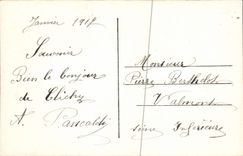 Janvier 1918
Souvenir
Bien le bonjour
de Clichy
A. Pascaldi
Monsieur
Pierre Berthelot
Valmont
Seine Inférieure